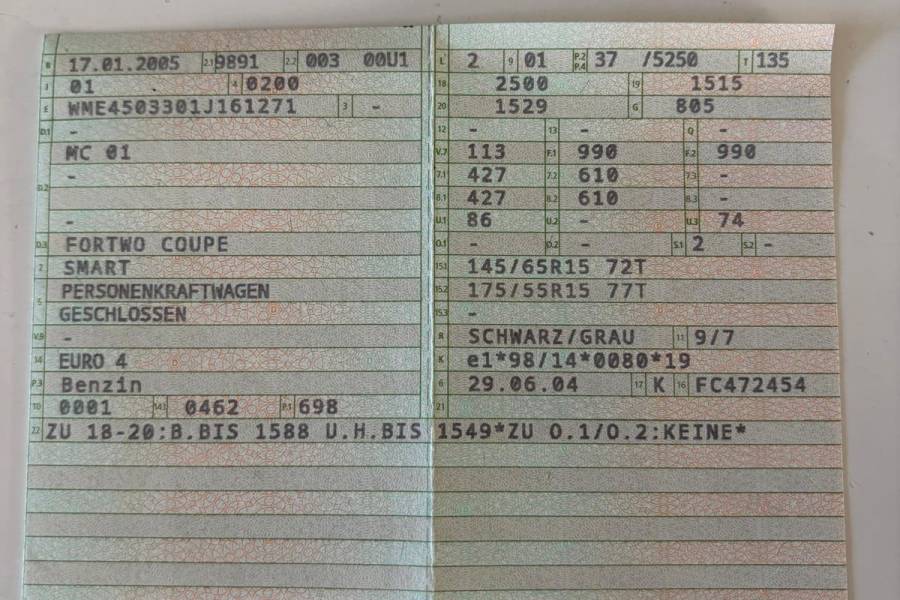 B 17.01.2005 2.1 9891 2.2 003 00U1 L 2 9 01 P.2 P.4 37 /5250 T 135
J 01 4 0200 18 2500 19 1515
E WME4503301J161271 3 - 20 1529 G 805
D.1 - 12 - 13 - Q -
MC 01 V.7 113 F.1 990 F.2 990
D.2 - 7.1 427 7.2 610 7.3 -
8.1 427 8.2 610 8.3 -
- U.1 86 U.2 - U.3 74
D.3 FORTWO COUPE O.1 - O.2 - S.1 2 S.2 -
2 SMART 15.1 145/65R15 72T
5 PERSONENKRAFTWAGEN 15.2 175/55R15 77T
GESCHLOSSEN 15.3 -
V.9 - R SCHWARZ/GRAU 11 9/7
14 EURO 4 K e1*98/14*0080*19
P.3 Benzin 6 29.06.04 17 K 16 FC472454
10 0001 14.1 0462 P.1 698 21
22 ZU 18-20:B.BIS 1588 U.H.BIS 1549*ZU O.1/O.2:KEINE*